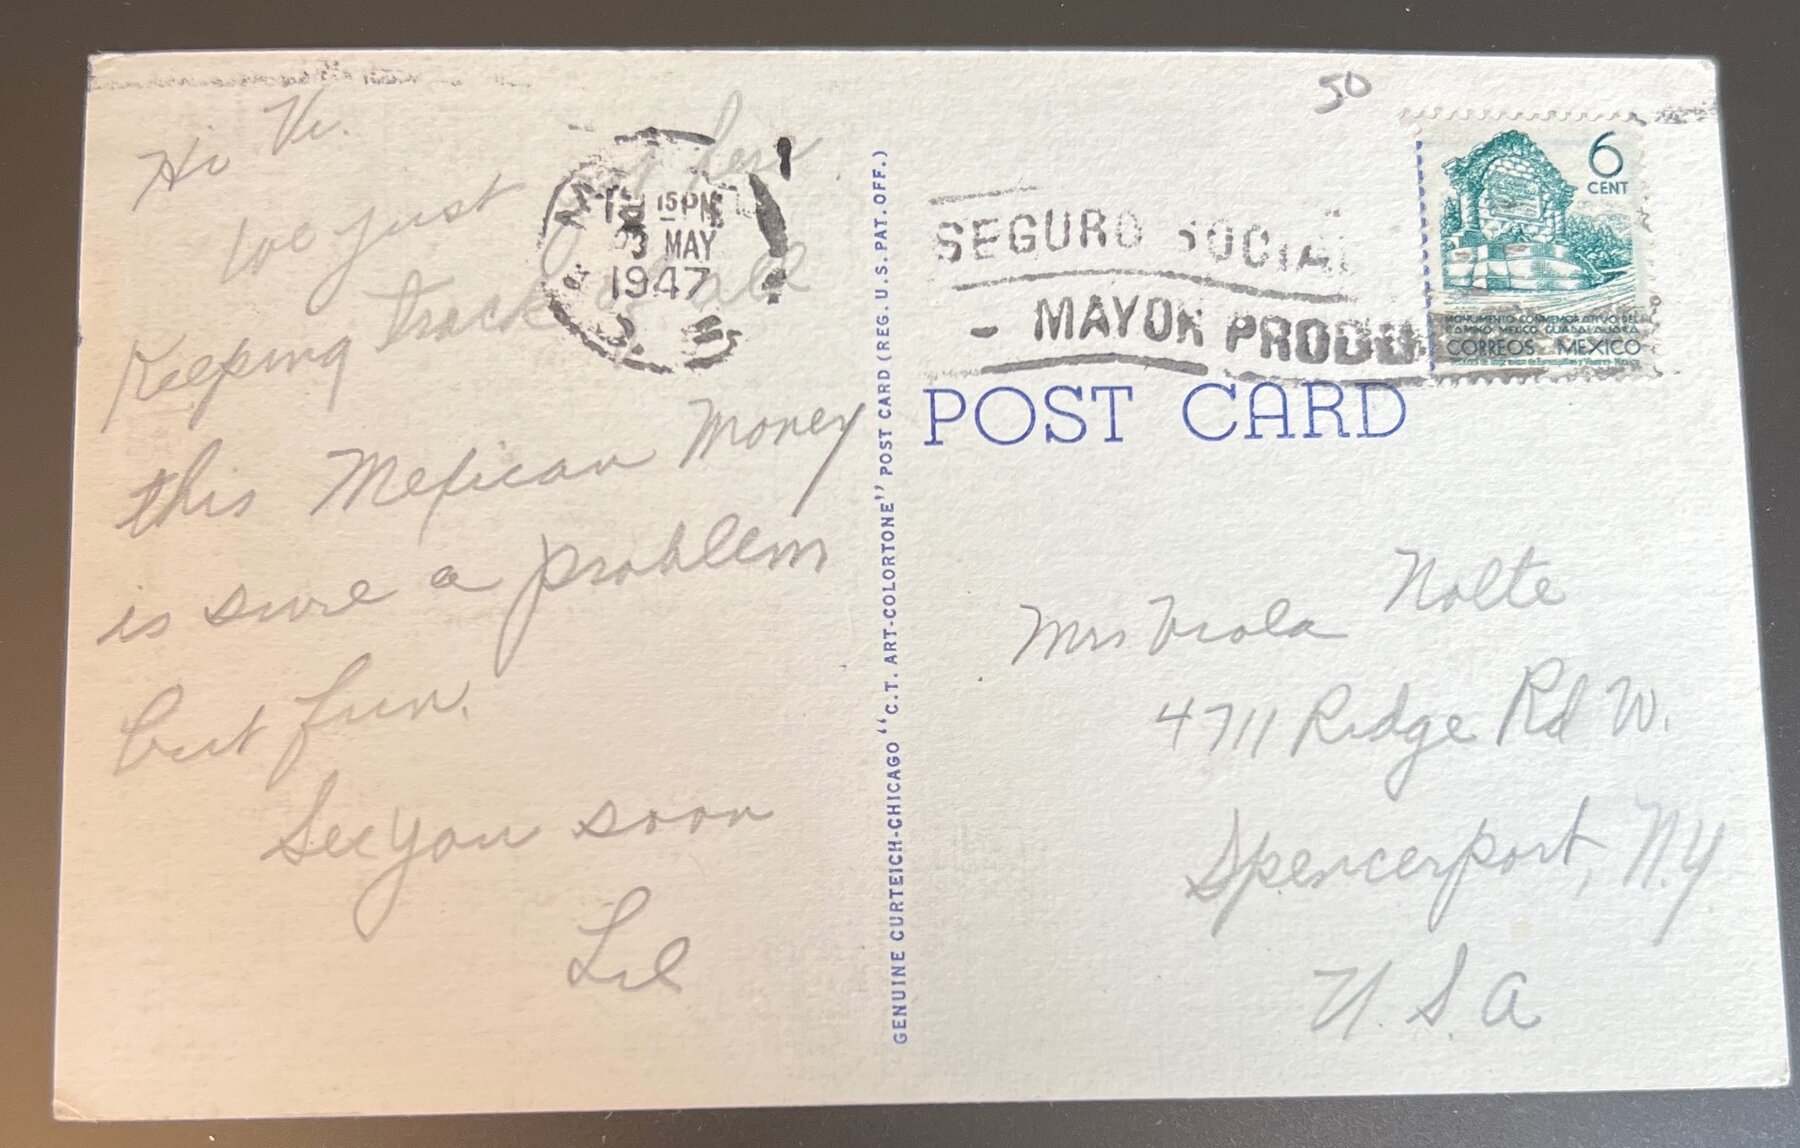 Hi Vi.
We just got here
Keeping track of all
this Mexican money
is sure a problem
but fun.
See you soon
Lil
15 PM
MAY
1947
GENUINE CURTEICH-CHICAGO "C.T. ART-COLORTONE" POST CARD (REG. U.S. PAT. OFF.)
50
SEGURO SOCIAL
- MAYOR PRODU
6
CENT
MONUMENTO CONMEMORATIVO DEL
CAMINO MEXICO GUADALAJARA
CORREOS MEXICO
POST CARD
Mrs Viola Nolte
4711 Ridge Rd W.
Spencerport, N.Y.
U.S.A